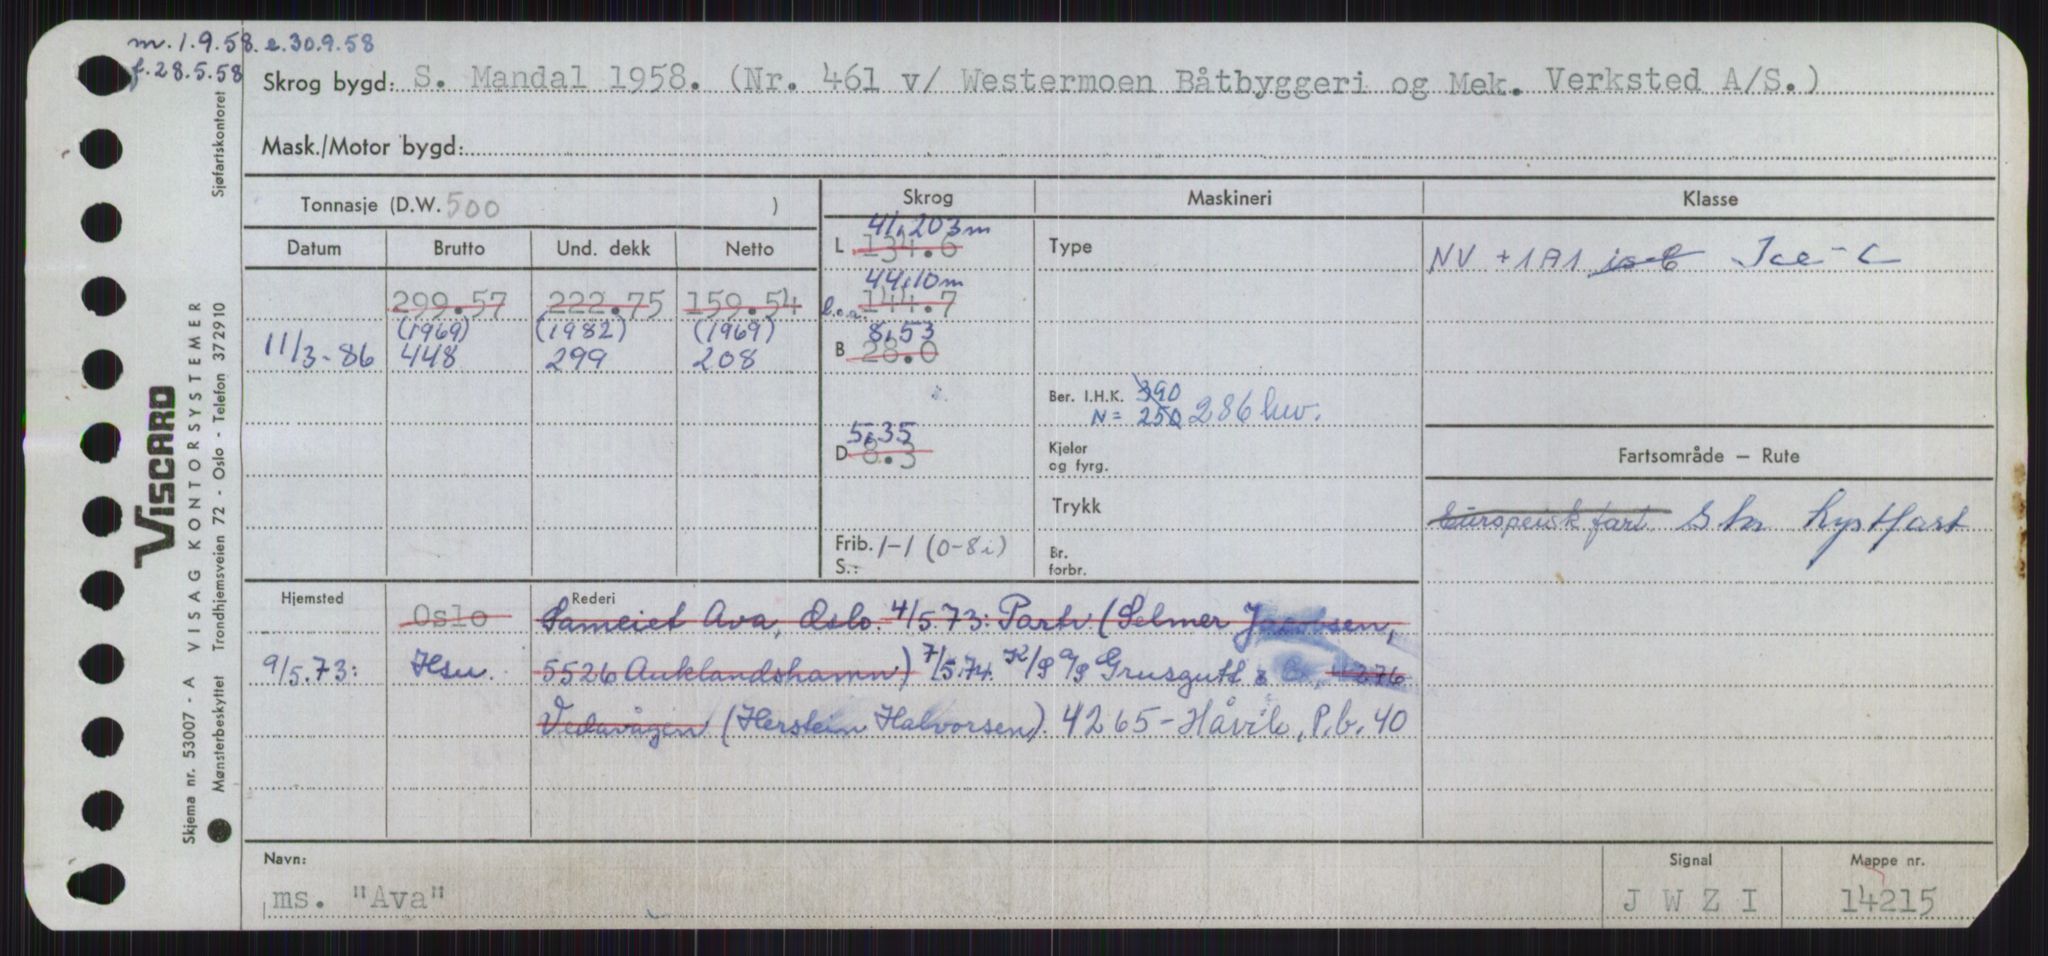 m. 1.9.58. e. 30.9.58
f. 28.5.58
Skrog bygd: S. Mandal 1958. (Nr. 461 v/ Westermoen Båtbyggeri og Mek. Verksted A/S.)
Mask./Motor bygd:
Sjøfartskontoret
Tonnasje (D.W. 500 )
Skrog
Maskineri
Klasse
Datum Brutto Und. dekk Netto
41,203 m
L 134.6
Type
NV + 1A1 is C Ice - C
299.57 222.75 159.54
44,10 m
l.o.a. 144.7
(1969) (1982) (1969)
11/3-86 448 299 208
8,53
B 28.0
Ber. I.H.K. 390
N = 250 286 hv.
5,35
D 8.3
Kjeler
og fyrg.
Fartsområde – Rute
Trykk
Europeisk fart Stor kystfart
Frib. 1-1 (0-8 i)
S.:
Br.
forbr.
Hjemsted
Rederi
Oslo Sameiet Ava, Oslo. 4/5.73: Partr (Selmer Jacobsen,
9/5.73: Hsu. 5526 Auklandshamn) 7/5.74. K/S A/S Grusgutt & Co., 4276
Vedavågen (Herstein Halvorsen). 4265 - Håvik, P.b. 40
Navn:
Signal
Mappe nr.
ms. "Ava"
J W Z I
14215
VISCARD
Skjema nr. 53007 - A VISAG KONTORSYSTEMER
Mønsterbeskyttet Trondhjemsveien 72 - Oslo - Telefon 372910